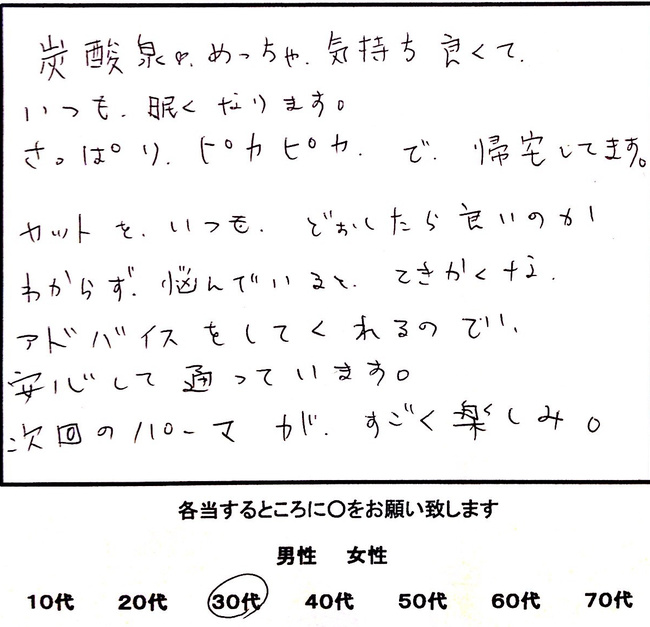 炭酸泉が、めっちゃ、気持ち良くて、
いつも、眠くなります。
さっぱり、ピカピカ、で、帰宅してます。
カットを、いつも、どおしたら良いのか
わからず、悩んでいると、てきかくな、
アドバイスをしてくれるので、
安心して通っています。
次回のパーマが、すごく楽しみ。
各当するところに〇をお願い致します
男性 女性
10代 20代 30代 40代 50代 60代 70代